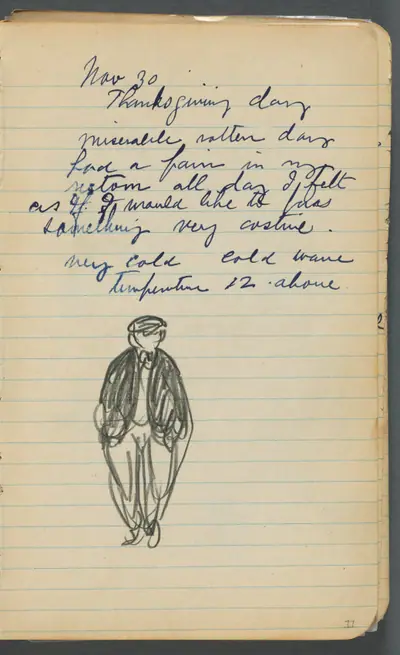 Nov 30
Thanksgiving day
miserable rotten day
had a pain in my
rectom all day I felt
as if I would like to pass
something very costive.
very cold cold wave
temperature 12 above